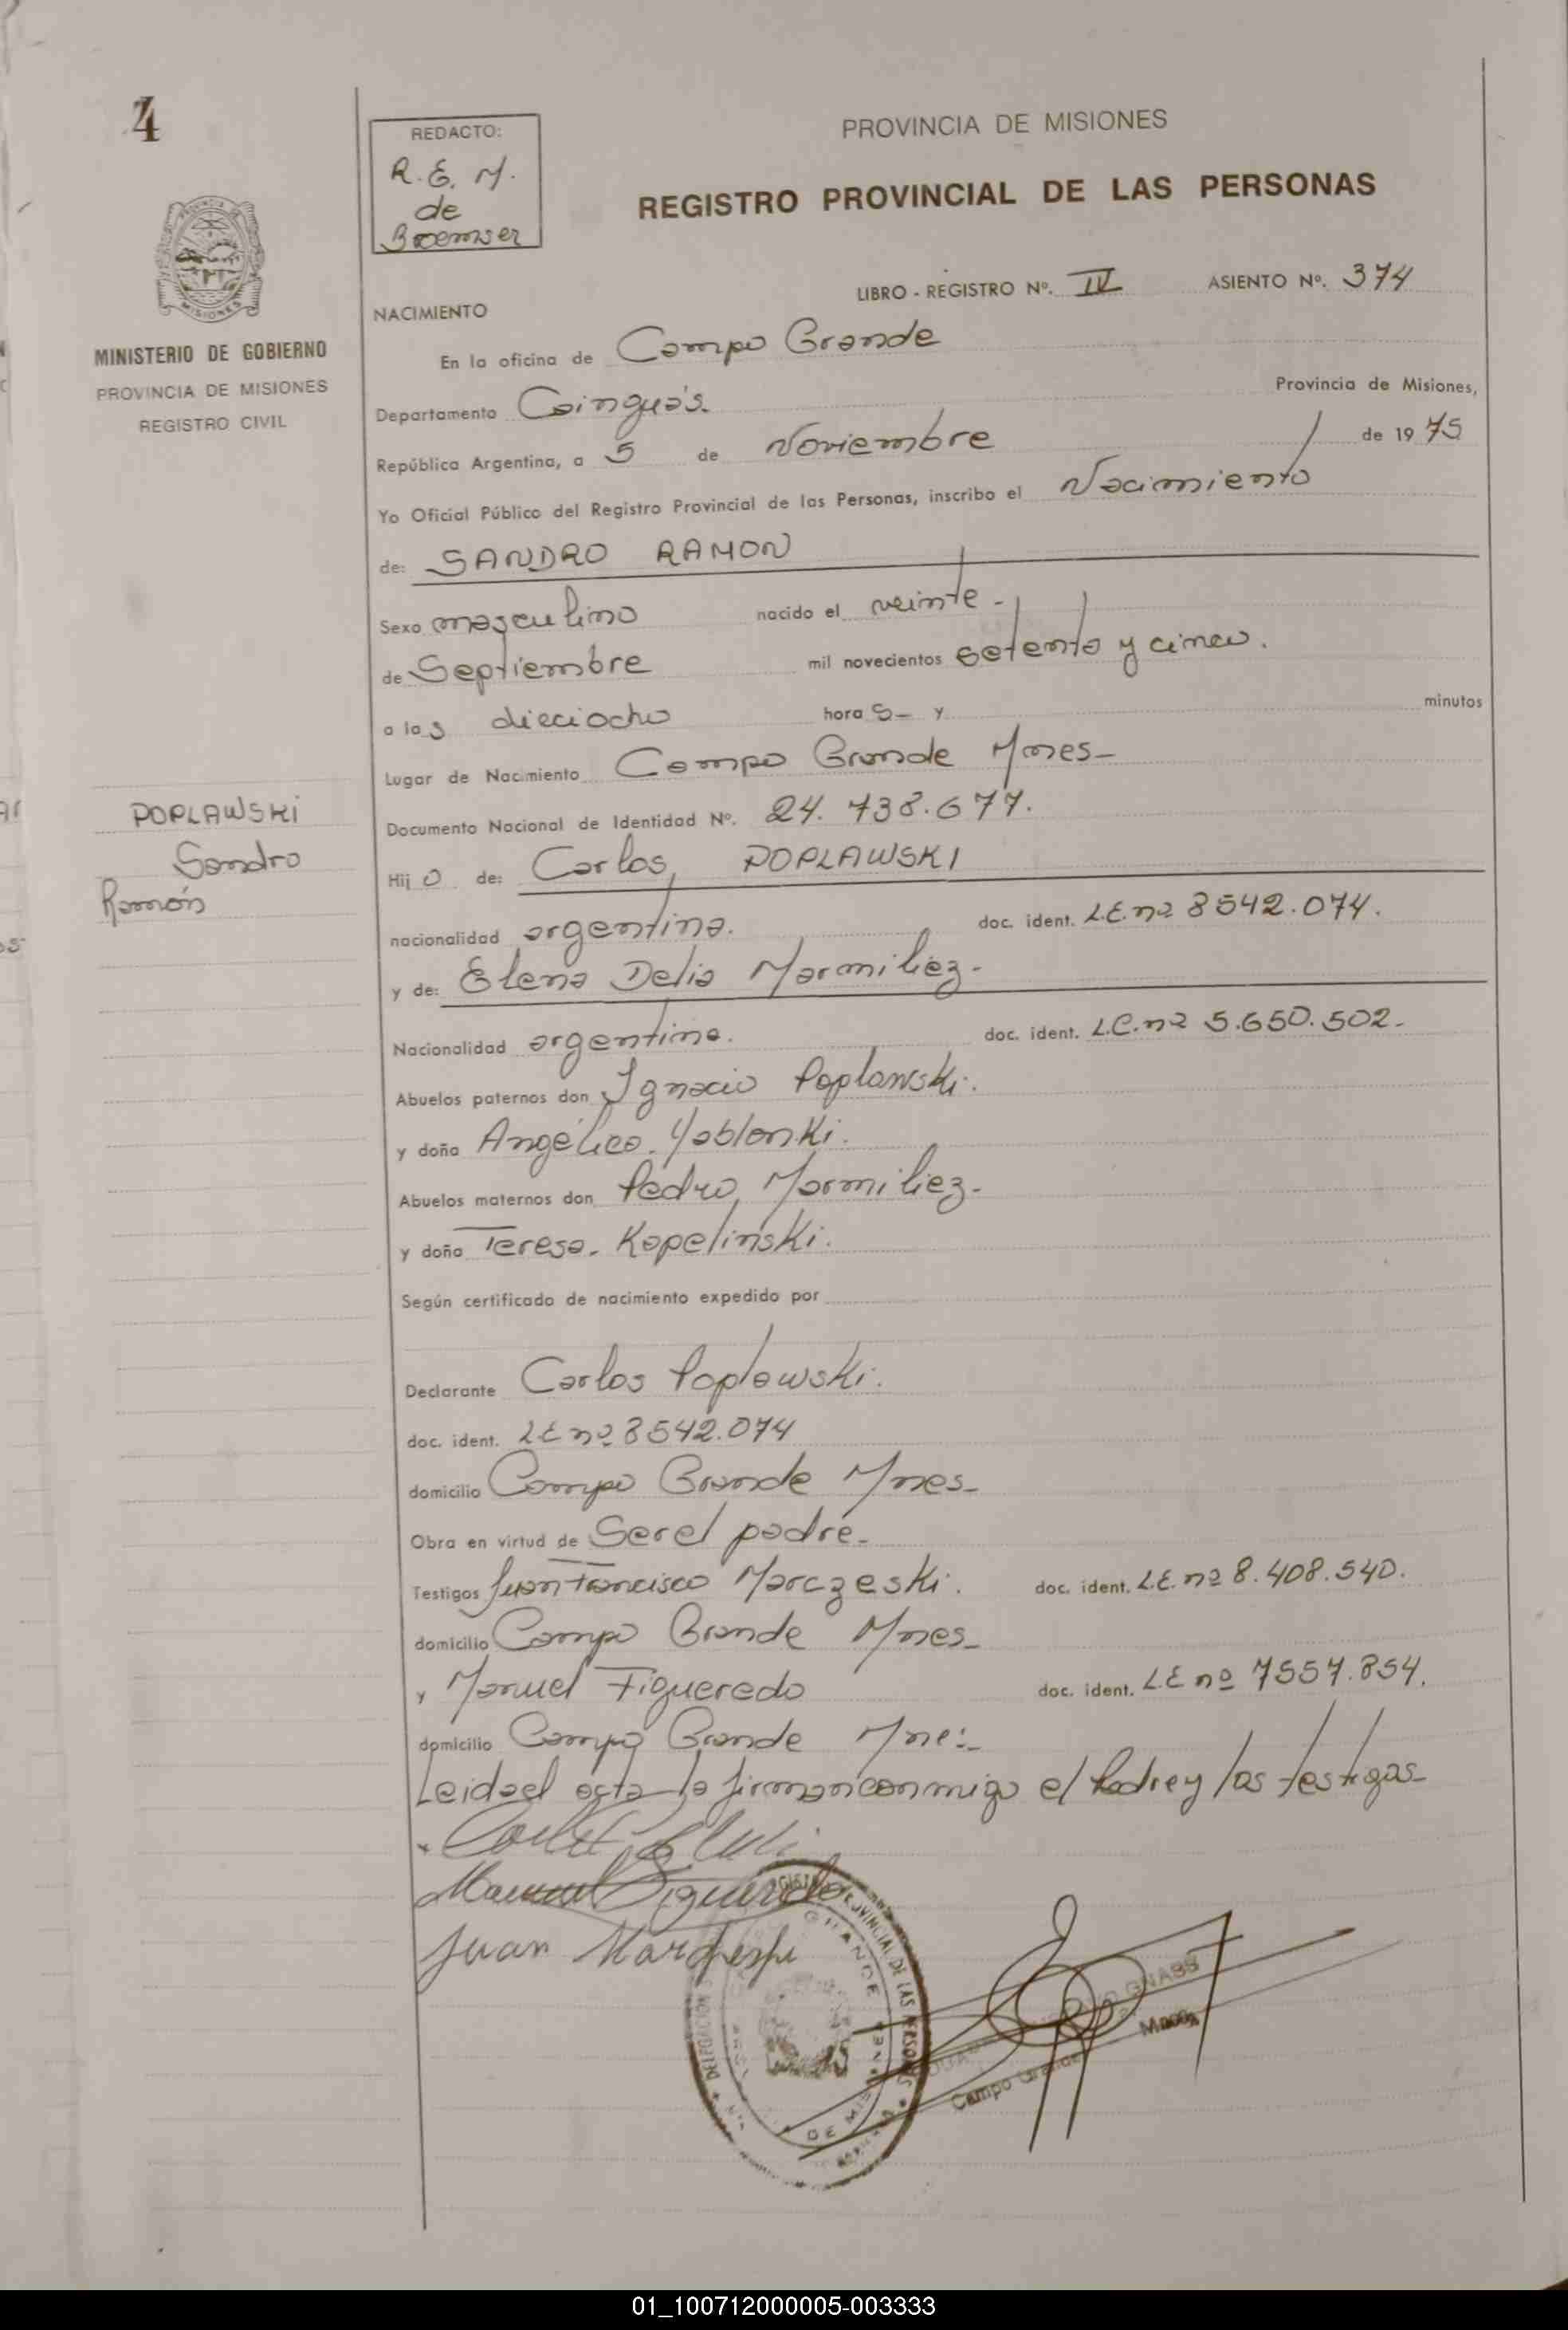 4
REDACTO:
R. E. M.
de
Broemser
PROVINCIA DE MISIONES
REGISTRO PROVINCIAL DE LAS PERSONAS
PROVINCIA DE
MISIONES
MINISTERIO DE GOBIERNO
PROVINCIA DE MISIONES
REGISTRO CIVIL
LIBRO - REGISTRO Nº. IV ASIENTO Nº. 374
NACIMIENTO
En la oficina de Campo Grande
Departamento Cainguás. Provincia de Misiones,
República Argentina, a 5 de Noviembre de 1975
Yo Oficial Público del Registro Provincial de las Personas, inscribo el Nacimiento
de: SANDRO RAMON
Sexo masculino nacido el veinte -
de Septiembre mil novecientos setenta y cinco.
a las dieciocho hora s- y minutos
Lugar de Nacimiento Campo Grande Mnes-
Documento Nacional de Identidad Nº. 24. 738.677.
POPLAWSKI
Sandro
Ramón
Hijo de: Carlos POPLAWSKI
nacionalidad argentina. doc. ident. L.E. nº 8542.074.
y de: Elena Delia Marmiliez-
Nacionalidad argentina. doc. ident. L.C. nº 5.650.502-
Abuelos paternos don Ignacio Poplawski.
y doña Angélica Yablonki.
Abuelos maternos don Pedro Marmiliez-
y doña Teresa. Kopelinski.
Según certificado de nacimiento expedido por
Declarante Carlos Poplawski.
doc. ident. LE nº 8542.074
domicilio Campo Grande Mnes-
Obra en virtud de Ser el padre-
Testigos Juan Francisco Marczeski. doc. ident. L.E. nº 8.408.540.
domicilio Campo Grande Mnes-
y Manuel Figueredo doc. ident. LE nº 7557.854.
domicilio Campo Grande Mne:-
Leida el acta la firman conmigo el Padre y los testigos-
Manuel Figueredo
Juan
DELEGACION
PROVINCIAL DE LAS PERSONAS
GRANDE
DE MISIONES
GNASS
Campo Grande
Mnes
01_100712000005-003333